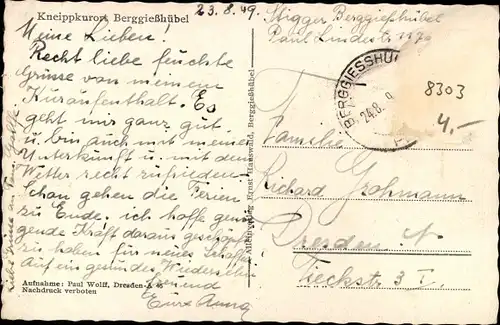 Kneippkurort Berggießhübel
23.8.49.
Berggießhübel
Paul Lindestr.
Meine Lieben!
Recht liebe feuchte
Grüsse von meinem
Kuraufenthalt. Es
geht mir ganz gut
u. bin auch mit meiner
Unterkunft u. mit dem
Wetter recht zufrieden.
Schon gehen die Ferien
zu Ende. ich hoffe genü-
gende Kraft daraus geschöpft
zu haben für neues Schaffen.
Auf ein gesundes Wiedersehn
Eure Anna
BERGGIESSHÜ
24.8.
8303
4.-
Familie
Richard Grohmann
Dresden N
Tieckstr. 3 I.
Ernst Hauswald, Berggießhübel
Aufnahme: Paul Wolff, Dresden-A.
Nachdruck verboten